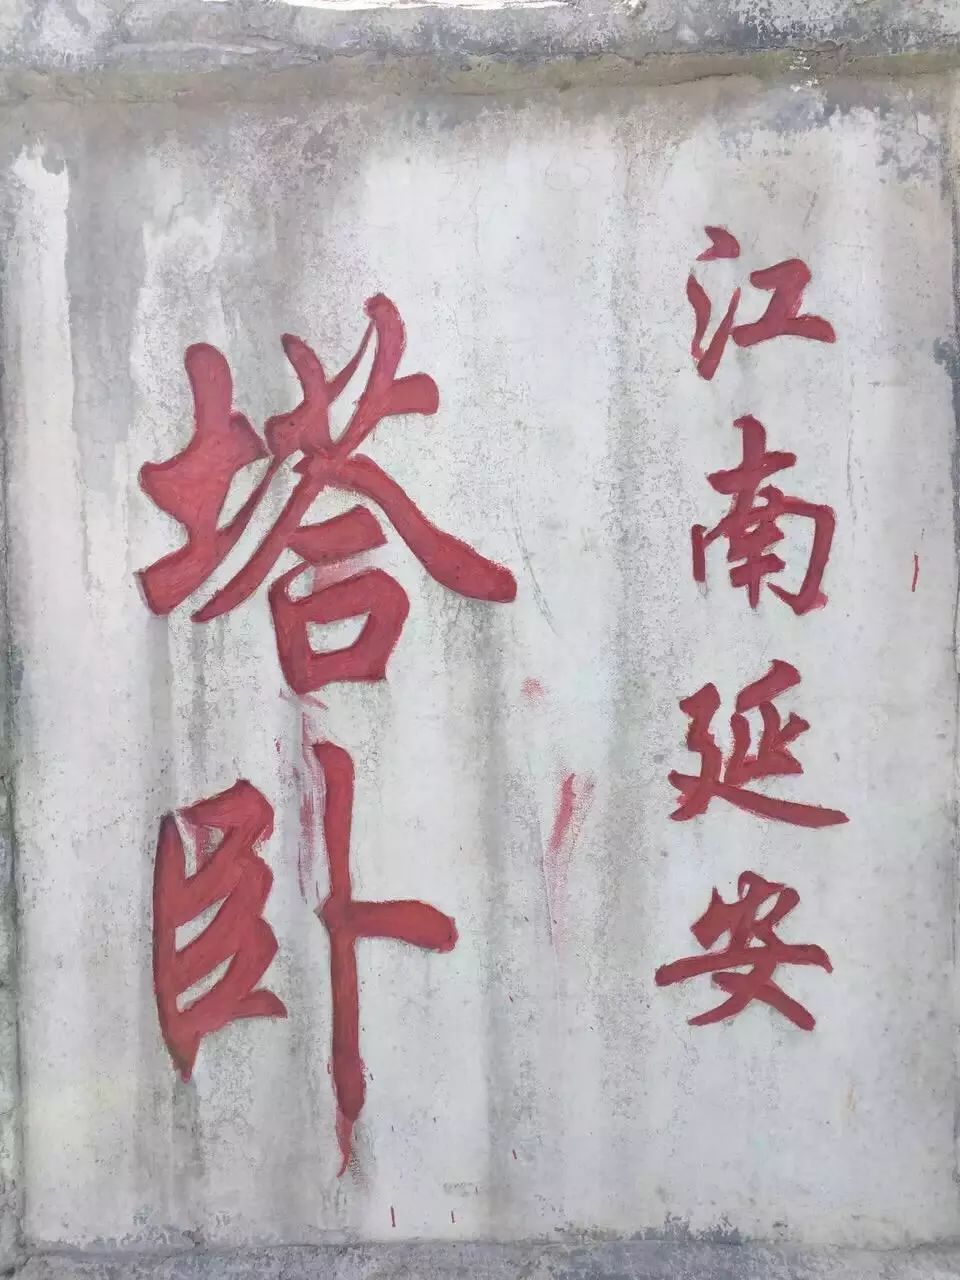 江南延安
塔卧